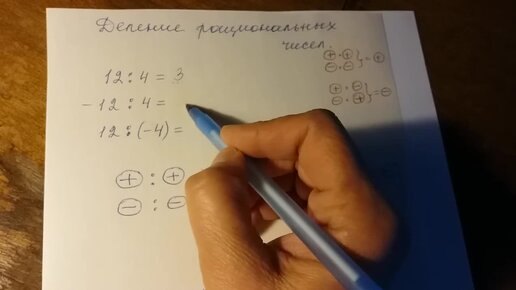 Деление рациональных
чисел.
12 : 4 = 3
- 12 : 4 =
12 : (-4) =
⊕ : ⊕
⊖ : ⊖
⊕ · ⊕
⊖ · ⊖ } = ⊕
⊕ · ⊖
⊖ · ⊕ } = ⊖